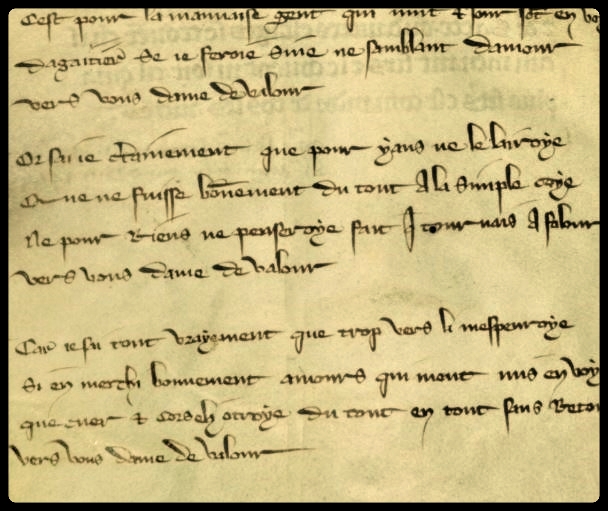 Cest pour la mauuaise gent qui nuit & jour sot en
dagaitier Se ie feroie Sine ne samblant damour
vers vous dame de valour
Or sai ie certainement que pour yaus ne le lairoye
ne fuisse bonement du tout A la simple coye
Ne pour Riens ne penseroye fait
vers vous dame de valour
Car ie sui tout vrayement que trop vers li mespenroye
Si en merchi bonnement amours qui ment mis en
que cuer & cors li otroye du tout en tout sans
vers vous dame de valour